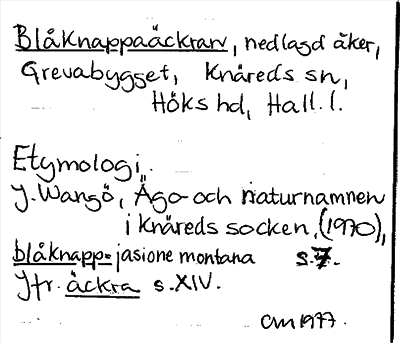 Blåknappaäckran, nedlagd åker,
Grevabygget, Knäreds sn,
Höks hd, Hall. l.
Etymologi.
J. Wangö, Ägo- och naturnamnen
i Knäreds socken, (1970),
blåknapp=jasione montana s. 7.
Jfr. äckra s. XIV.
CM 1977.